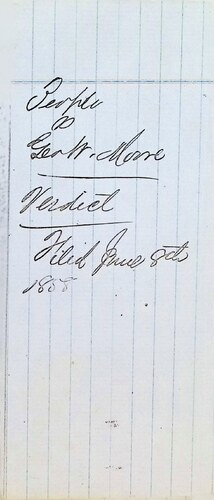 People
vs
Geo W. Moore
Verdict
Filed June 8th
1858